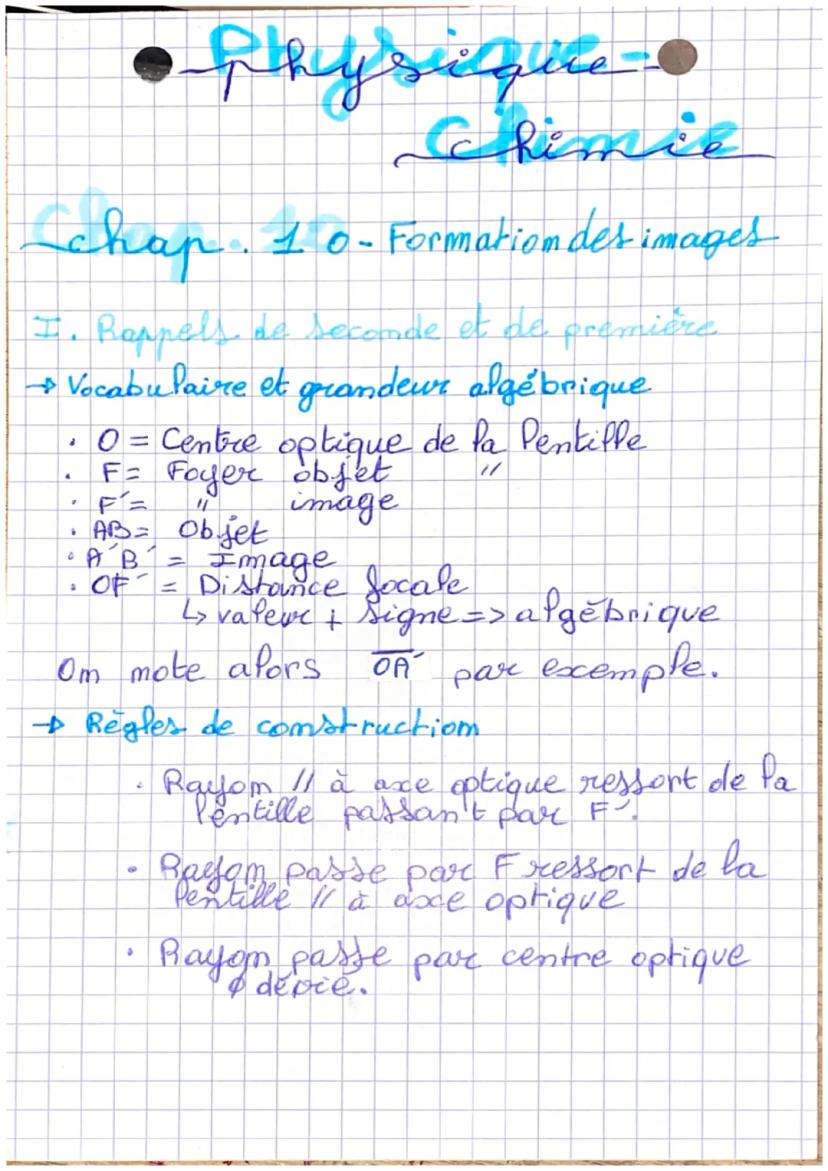 Physique-
Chimie
Chap. 10 - Formation des images
I. Rappels de seconde et de première
→ Vocabulaire et grandeur algébrique
• O = Centre optique de la lentille
• F = Foyer objet "
• F' = " image
• AB = Objet
• A'B' = Image
• OF' = Distance focale
↳ valeur + signe => algébrique
On note alors \overline{OA'} par exemple.
→ Règles de construction
• Rayon // à axe optique ressort de la
lentille passant par F'.
• Rayon passe par F ressort de la
lentille // à axe optique
• Rayon passe par centre optique
∅ dévié.